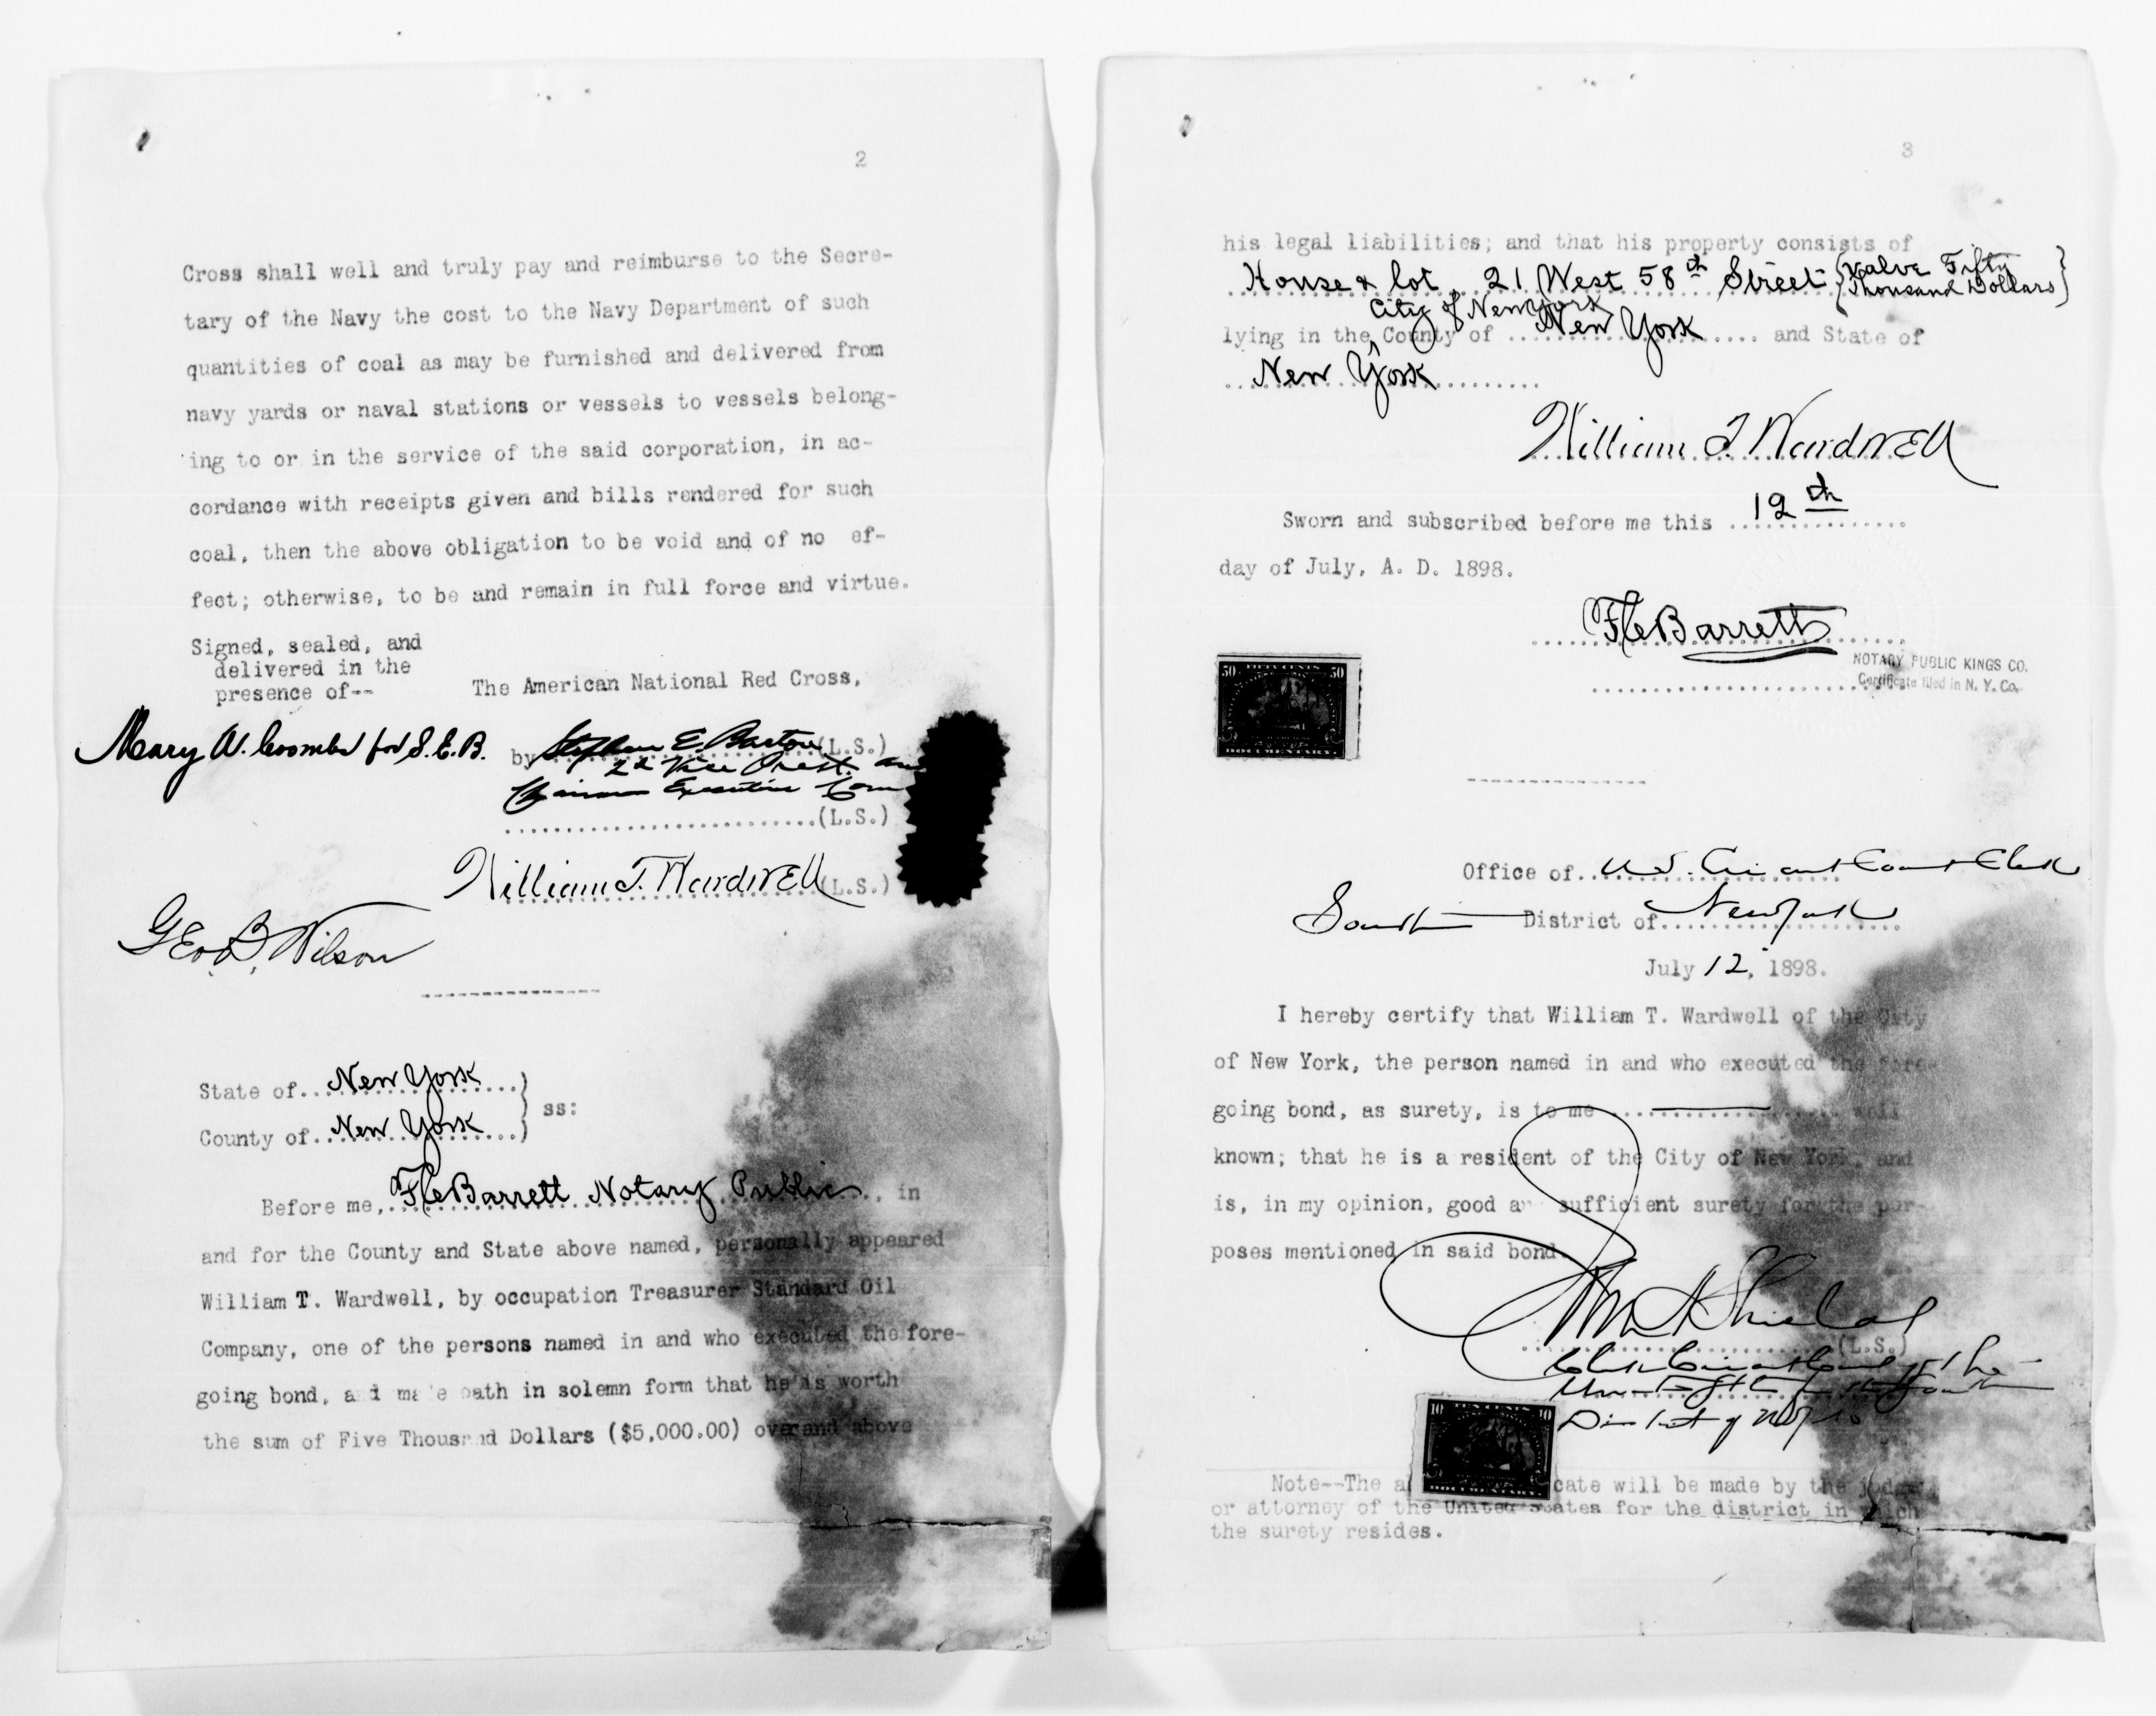 2
Cross shall well and truly pay and reimburse to the Secre-
tary of the Navy the cost to the Navy Department of such
quantities of coal as may be furnished and delivered from
navy yards or naval stations or vessels to vessels belong-
ing to or in the service of the said corporation, in ac-
cordance with receipts given and bills rendered for such
coal, then the above obligation to be void and of no ef-
fect; otherwise, to be and remain in full force and virtue.
Signed, sealed, and
delivered in the
presence of--
The American National Red Cross,
Mary A. Coombs for S.E.B.
by Stephen E. Barton (L.S.)
2d Vice Prest. and
Chairman Executive Com
(L.S.)
William T. Wardwell (L.S.)
Geo. B. Wilson
State of New York
County of New York
ss:
Before me, Barrett Notary Public, in
and for the County and State above named, personally appeared
William T. Wardwell, by occupation Treasurer Standard Oil
Company, one of the persons named in and who executed the fore-
going bond, and made oath in solemn form that he is worth
the sum of Five Thousand Dollars ($5,000.00) over and above
3
his legal liabilities; and that his property consists of
House & lot, 21 West 58th Street {Value Fifty
Thousand Dollars}
City of New York
lying in the County of New York and State of
New York
William T. Wardwell
Sworn and subscribed before me this 12th
day of July, A. D. 1898.
Barrett
NOTARY PUBLIC KINGS CO.
Certificate filed in N. Y. Co.
50 FIFTY CENTS 50
DOCUMENTARY
Office of U.S. Circuit Court Clerk
Southern District of New York
July 12, 1898.
I hereby certify that William T. Wardwell of the City
of New York, the person named in and who executed the fore-
going bond, as surety, is to me well
known; that he is a resident of the City of New York, and
is, in my opinion, good and sufficient surety for the pur-
poses mentioned in said bond.
Shields
(L.S.)
Clerk Circuit Court of the
United States for the Southern
District of N.Y.
10 TEN CENTS 10
DOCUMENTARY
Note--The a cate will be made by the judge
or attorney of the United States for the district in which
the surety resides.